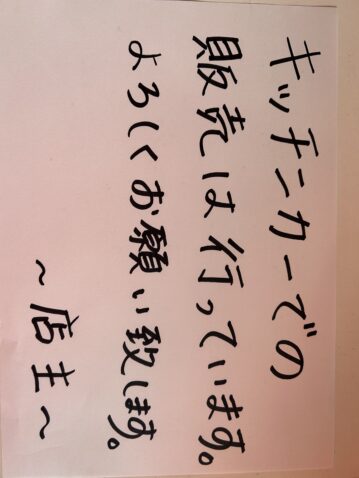 キッチンカーでの
販売は行っています。
よろしくお願い致します。
～店主～